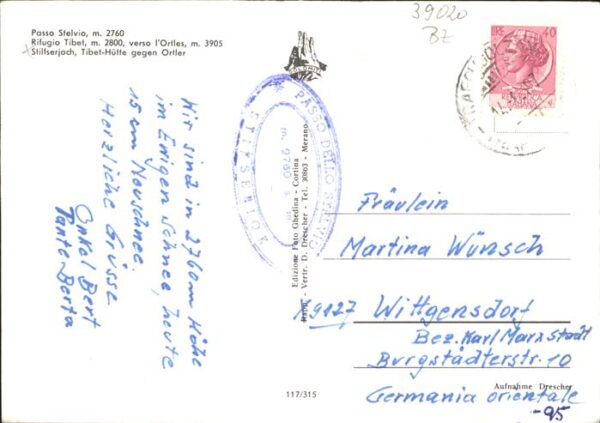 Passo Stelvio, m. 2760
Rifugio Tibet, m. 2800, verso l'Ortles, m. 3905
Stilfserjoch, Tibet-Hütte gegen Ortler
39020
BZ
LIRE 40
ITALIANA
PASSO DELLO STELVIO
m. 2760
STILFSERJOCH
Wir sind in 2760m Höhe
im Ewigen Schnee, heute
15 cm Neuschnee.
Herzliche Grüsse
Onkel Bert
Tante Berta
Edizione Foto Ghedina - Cortina
Rapp. - Vertr. D. Drescher - Tel. 30863 - Merano
Fräulein
Martina Wünsch
X9127 Wittgensdorf
Bez. Karl Marx Stadt
Burgstädterstr. 10
Germania orientale
117/315
Aufnahme Drescher
-95